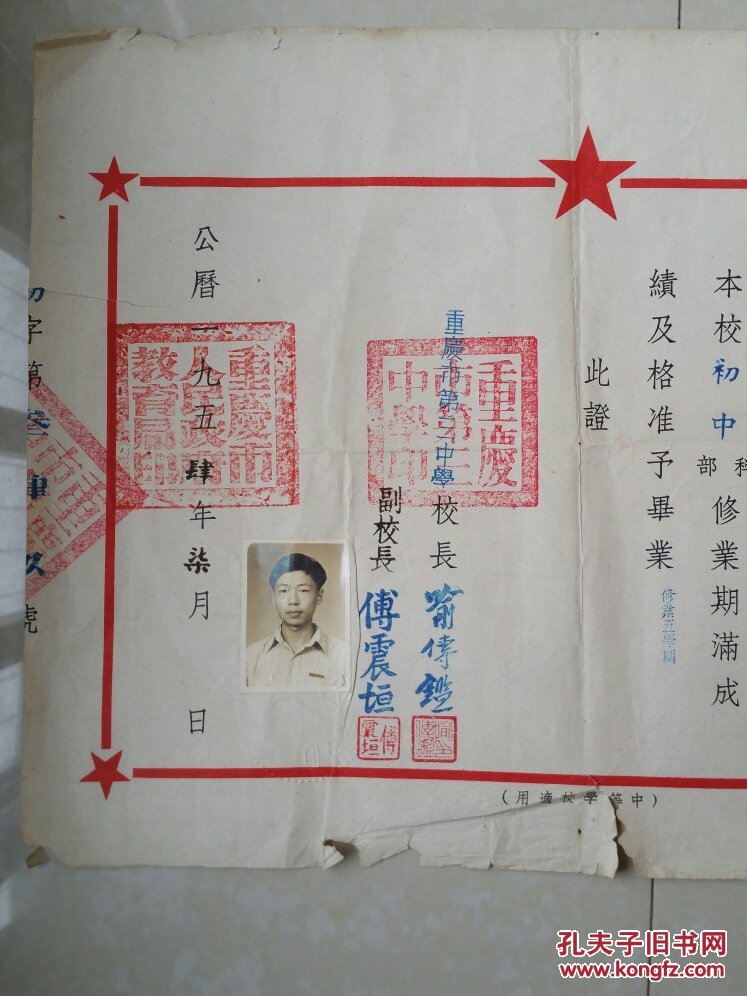 本校初中科部修業期滿成
績及格准予畢業
修業五學期
此證
重慶市第三中學校長喻傳鑑
副校長傅震垣
重慶
市第三
中學印
傅
震垣
公曆一九五肆年柒月 日
重慶市
人民政府
教育局印
初字第叁
號
(中等學校適用)
孔夫子旧书网
www.kongfz.com